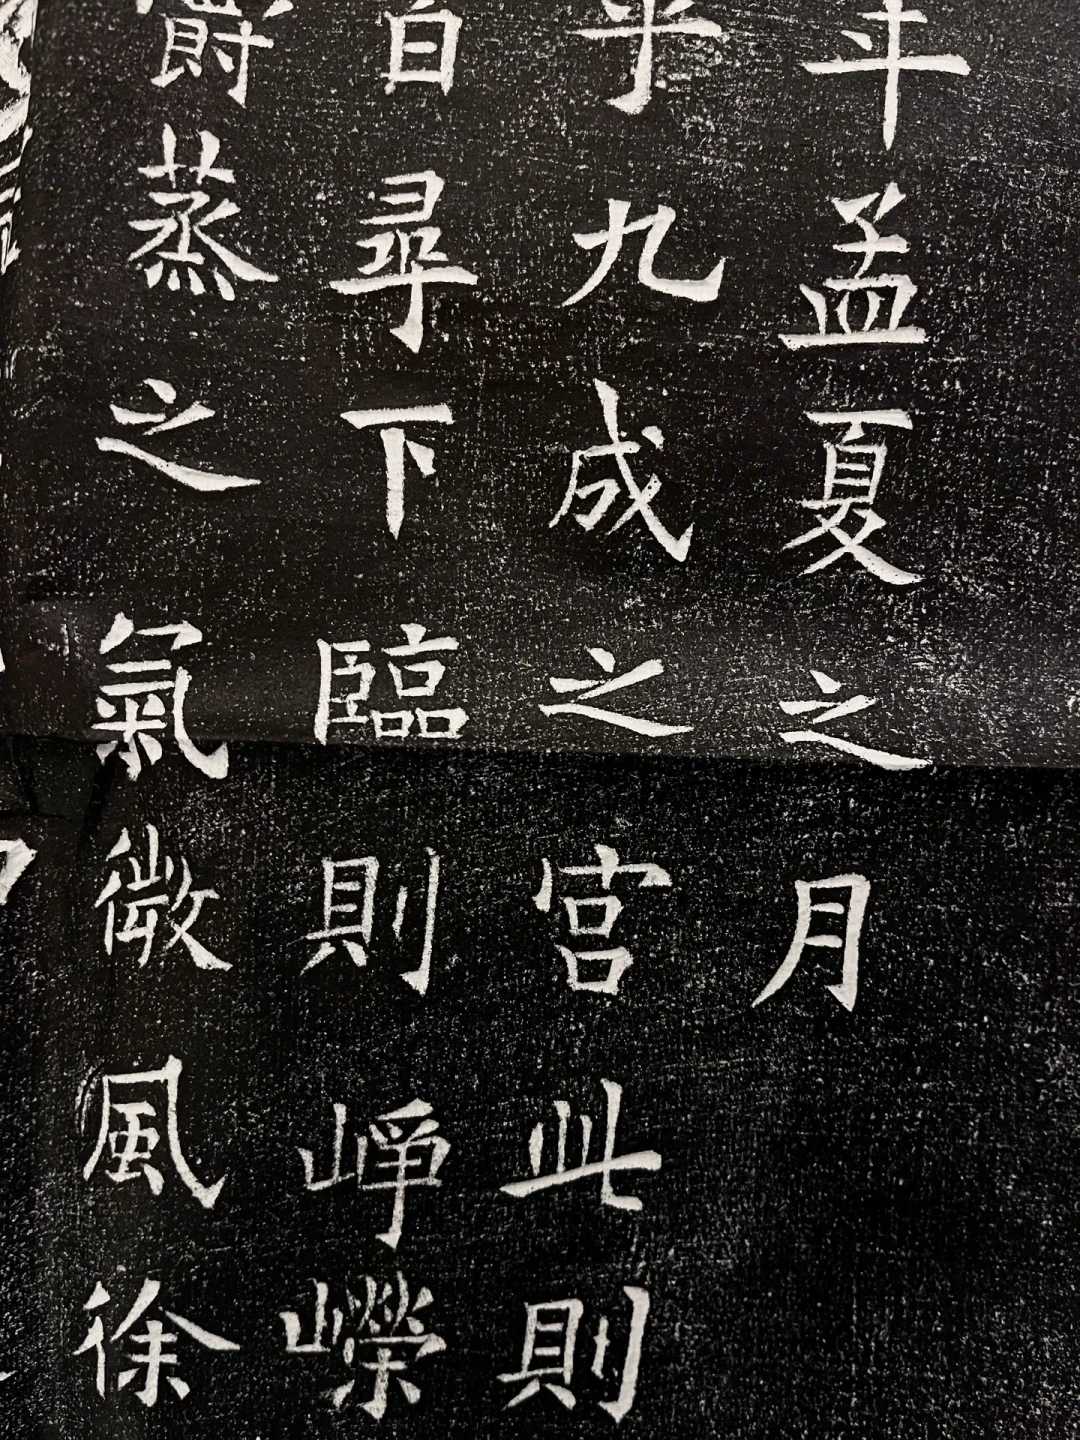 年孟夏之月
乎九成之宮此則
百尋下臨則崢嶸
鬱蒸之氣微風徐